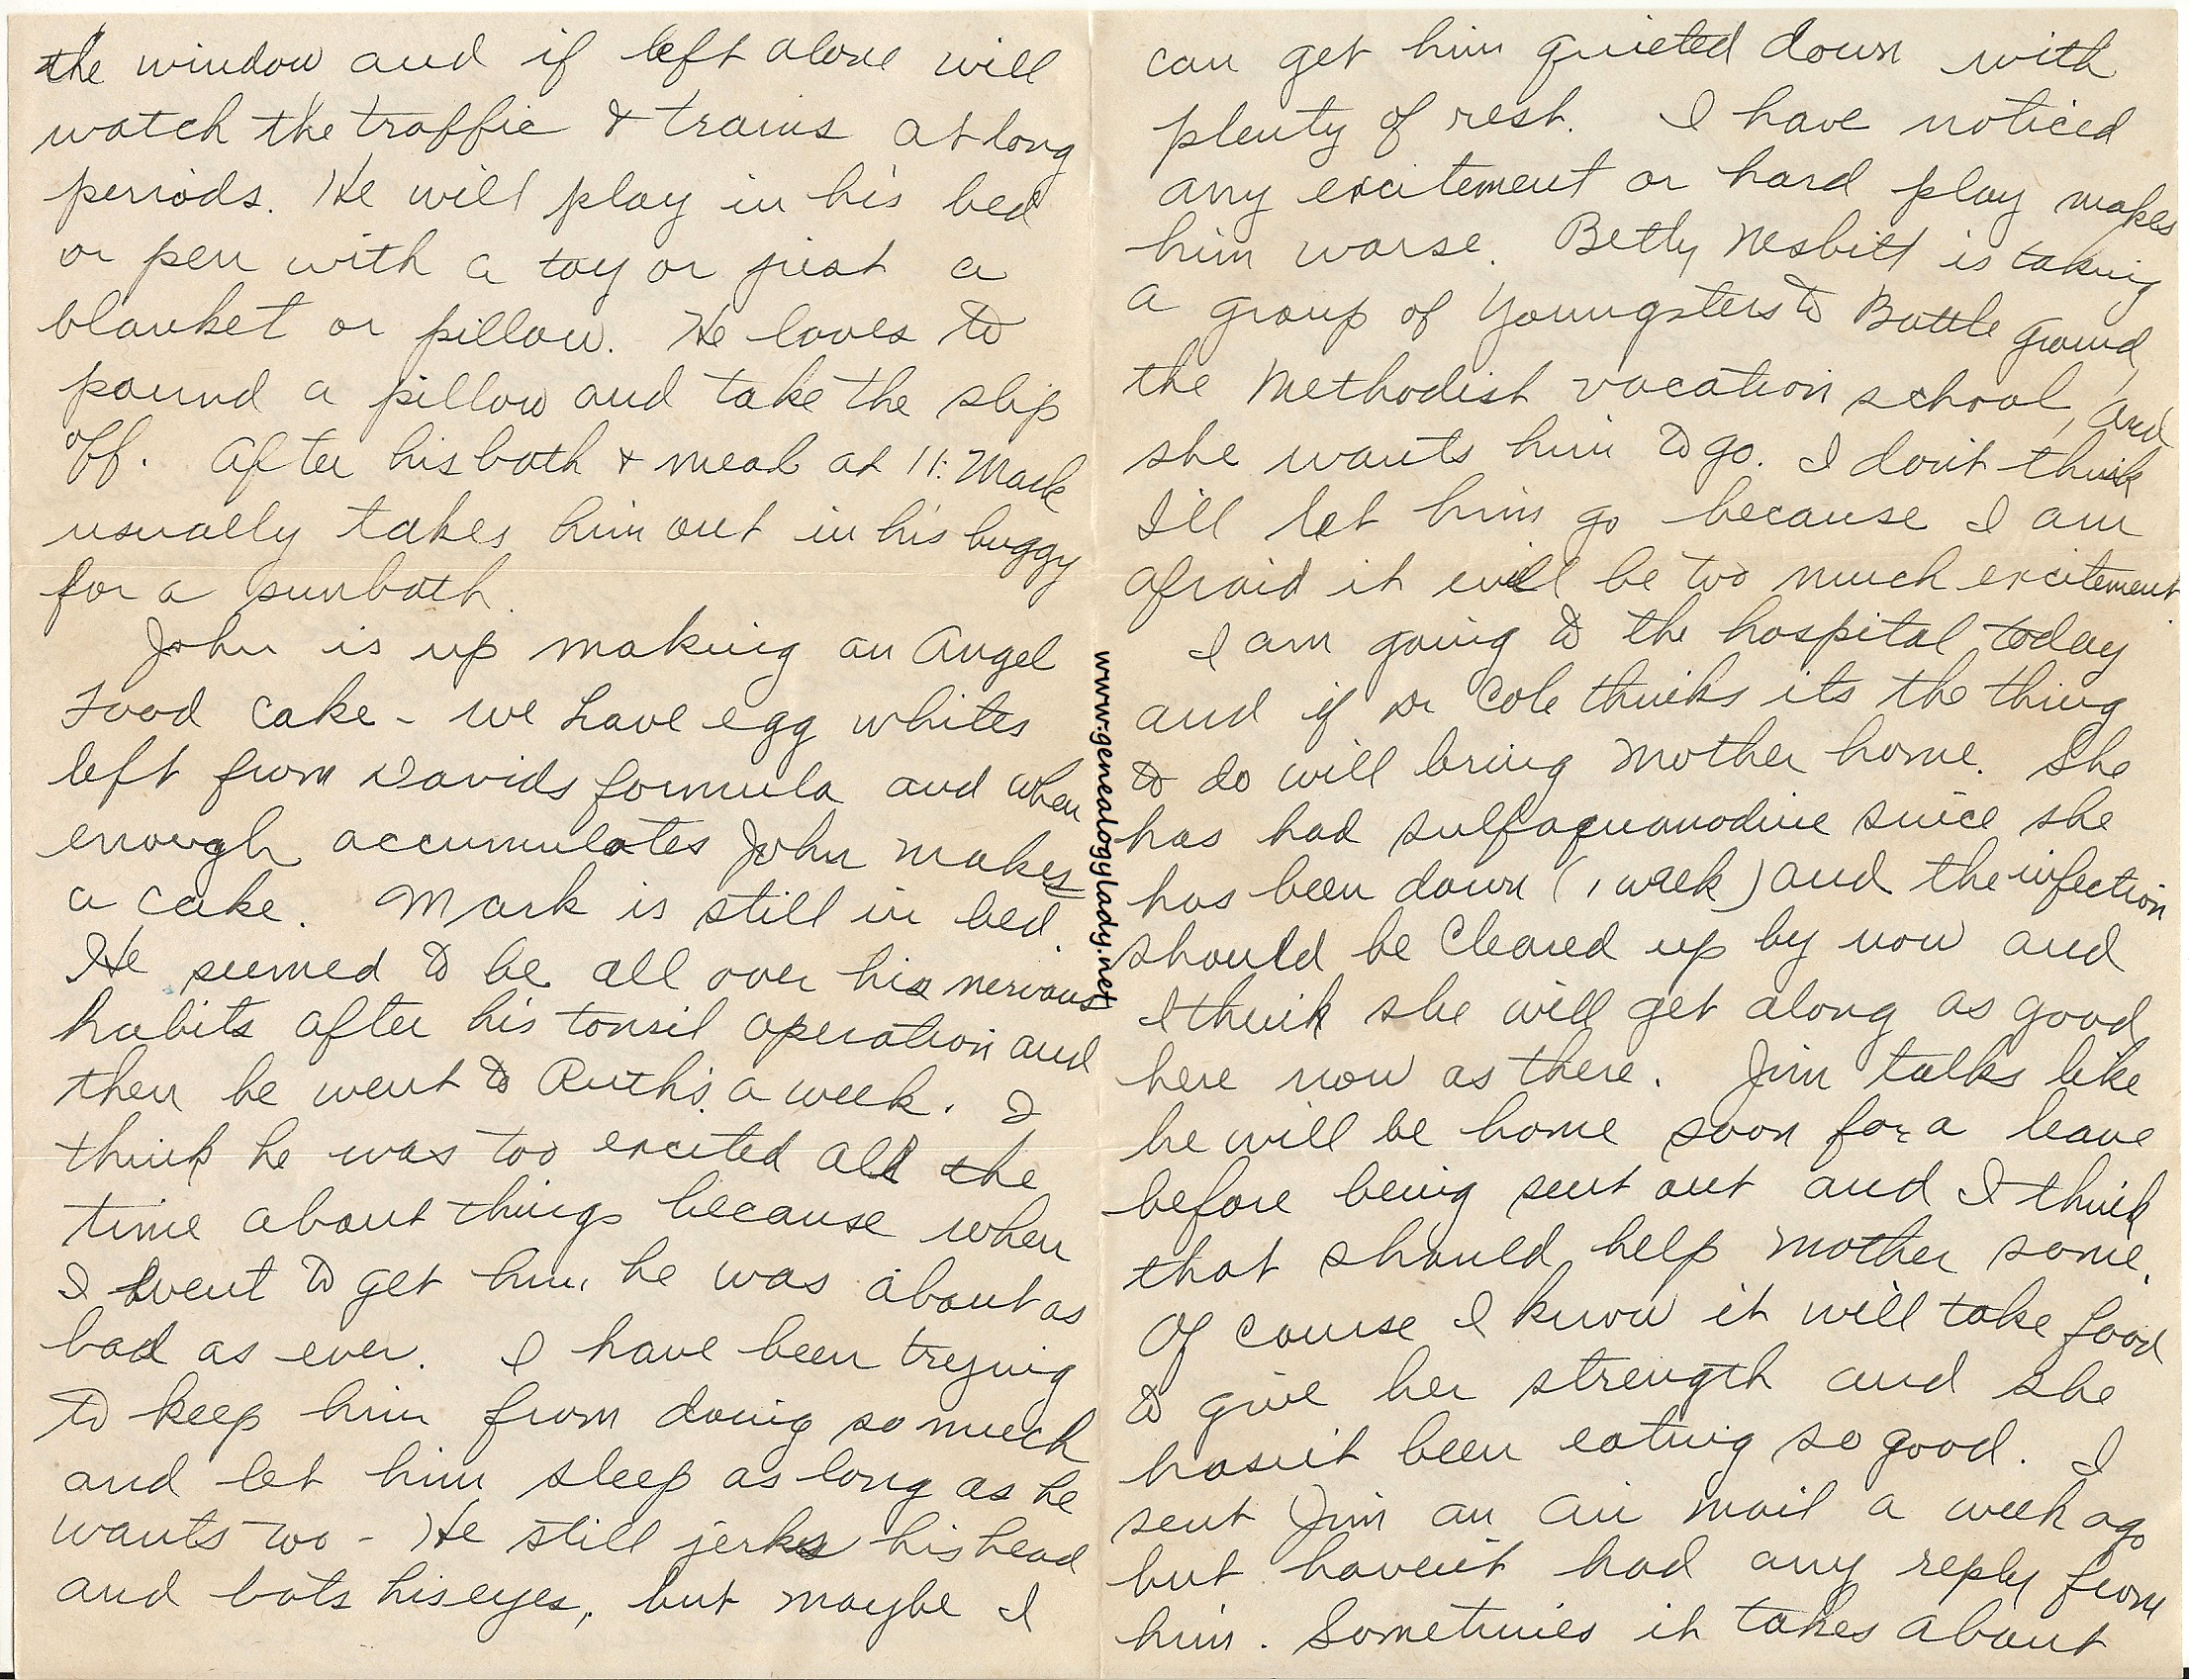 the window and if left alone will
watch the traffic & trains at long
periods. He will play in his bed
or pen with a toy or just a
blanket or pillow. He loves to
pound a pillow and take the slip
off. After his bath & meal at 11: Mark
usually takes him out in his buggy
for a sunbath.
John is up making an Angel
Food cake - we have egg whites
left from Davids formula and when
enough accumulates John makes
a cake. Mark is still in bed.
He seemed to be all over his nervous
habits after his tonsil operation and
then he went to Ruth's a week. I
think he was too excited all the
time about things because when
I went to get him, he was about as
bad as ever. I have been trying
to keep him from doing so much
and let him sleep as long as he
wants too - He still jerks his head
and bats his eyes, but maybe I
can get him quieted down with
plenty of rest. I have noticed
any excitement or hard play makes
him worse. Betty Nesbitt is taking
a group of youngsters to Battle ground,
the Methodist vacation school, and
she wants him to go. I don't think
I'll let him go because I am
afraid it will be too much excitement
I am going to the hospital today
and if Dr Cole thinks its the thing
to do will bring Mother home. She
has had sulfaquanodine since she
has been down (1 week) and the infection
should be cleared up by now and
I think she will get along as good
here now as there. Jim talks like
he will be home soon for a leave
before being sent out and I think
that should help Mother some.
Of course I know it will take food
to give her strength and she
hasn't been eating so good. I
sent Jim an air mail a week ago
but haven't had any reply from
him. Sometimes it takes about
www.genealogylady.net